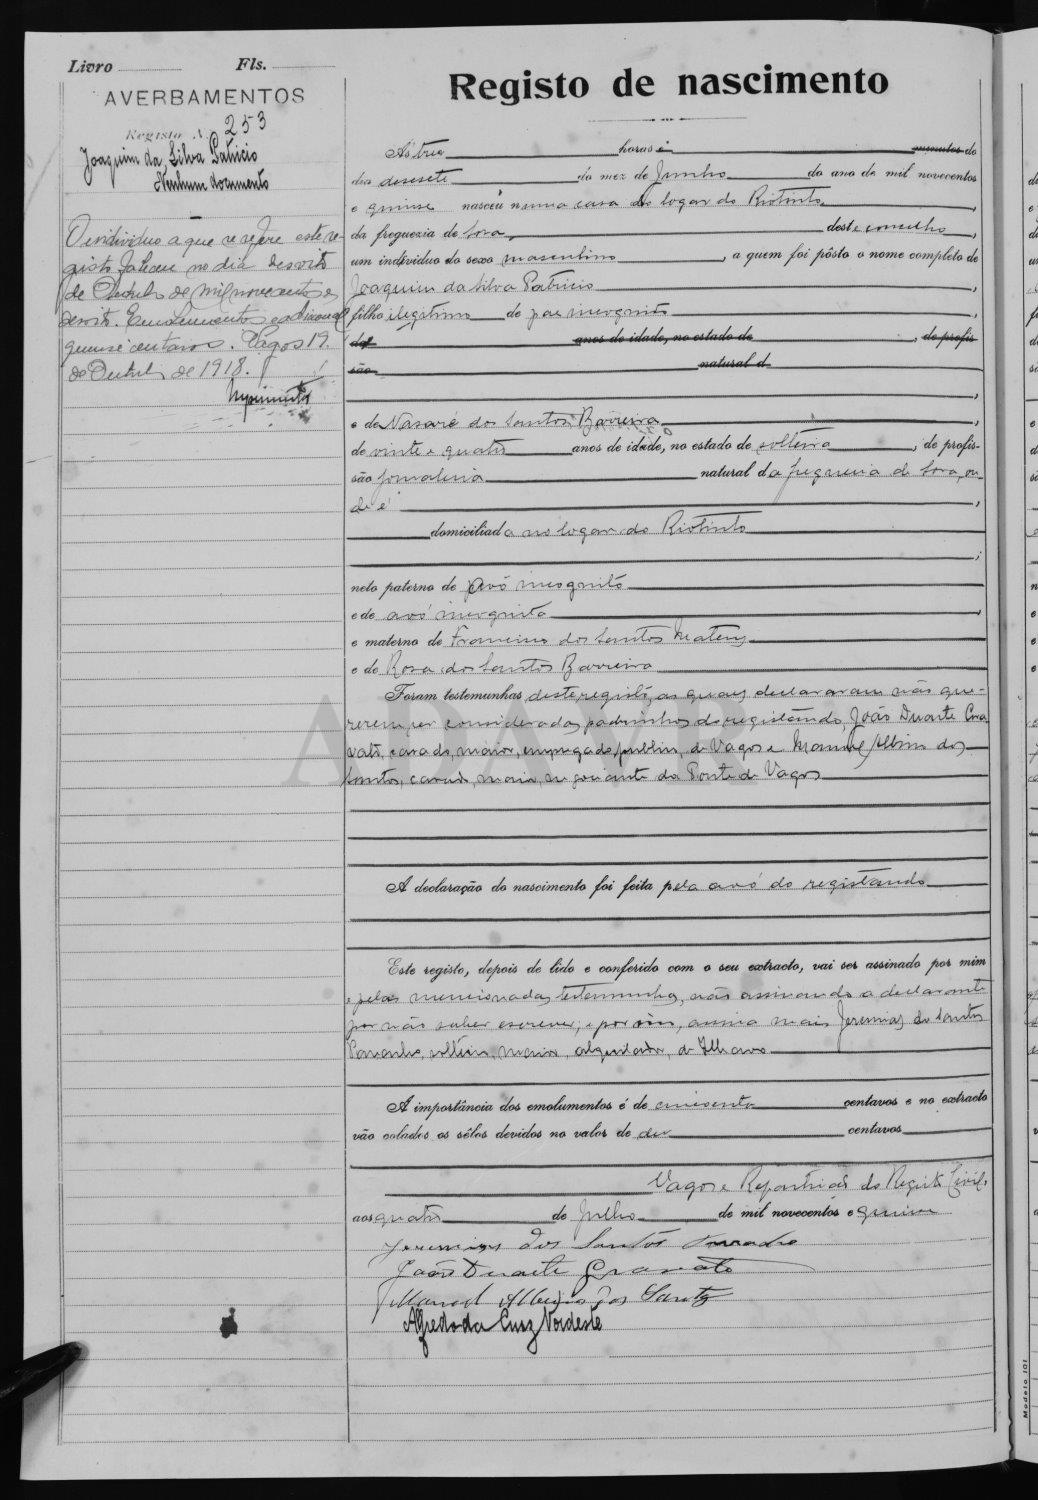 Livro Fls.
AVERBAMENTOS
Registo 253
Joaquim da Silva Patricio
Nenhum documento
O individuo a que se refere este re-
gisto faleceu no dia desoito
de Outubro de mil novecentos e
desoito. Emolumentos
quinse centavos. Vagos 19
de Outubro de 1918.
Registo de nascimento
Ás tres horas e minutos do
dia desesete do mez de Junho do ano de mil novecentos
e quinse nasceu numa casa do logar do Riotinto,
da freguezia de Sosa, deste concelho,
um individuo do sexo masculino, a quem foi pôsto o nome completo de
Joaquim da Silva Patricio,
filho ilegitimo de pae incognito
de anos de idade, no estado de, de profis-
são natural d
e de Nasaré dos Santos Barreira,
de vinte e quatro anos de idade, no estado de solteira, de profis-
são jornaleira natural da freguesia de Sosa, on-
de é,
domiciliada no logar do Riotinto;
neto paterno de avô incognito
e de avó incognita,
e materno de Francisco dos Santos
e de Rosa dos Santos Barreira
Foram testemunhas deste registo, as quaes declararam não que-
rerem ser consideradas padrinhos do registando, João Duarte Gra
vato, casado, maior, empregado publico, de Vagos e Manuel Albino dos
Santos, casado, maior, negociante da Ponte de Vagos
ADAVR
A declaração do nascimento foi feita pela avó do registando
Este registo, depois de lido e conferido com o seu extracto, vai ser assinado por mim
e pelas mencionadas testemunhas, não assinando a declarante
por não saber escrever; e por isso, assina mais Jeremias dos Santos
solteiro, maior, alquilador, de Ilhavo
A importância dos emolumentos é de cincoenta centavos e no extracto
vão colados os sêlos devidos no valor de dez centavos
Vagos e Repartição do Registo Civil,
aos quatro de Julho de mil novecentos e quinse
Jeremias dos Santos
João Duarte Gravato
Manoel Albino dos Santos
Alfredo da Cruz Nordeste
Modelo 101